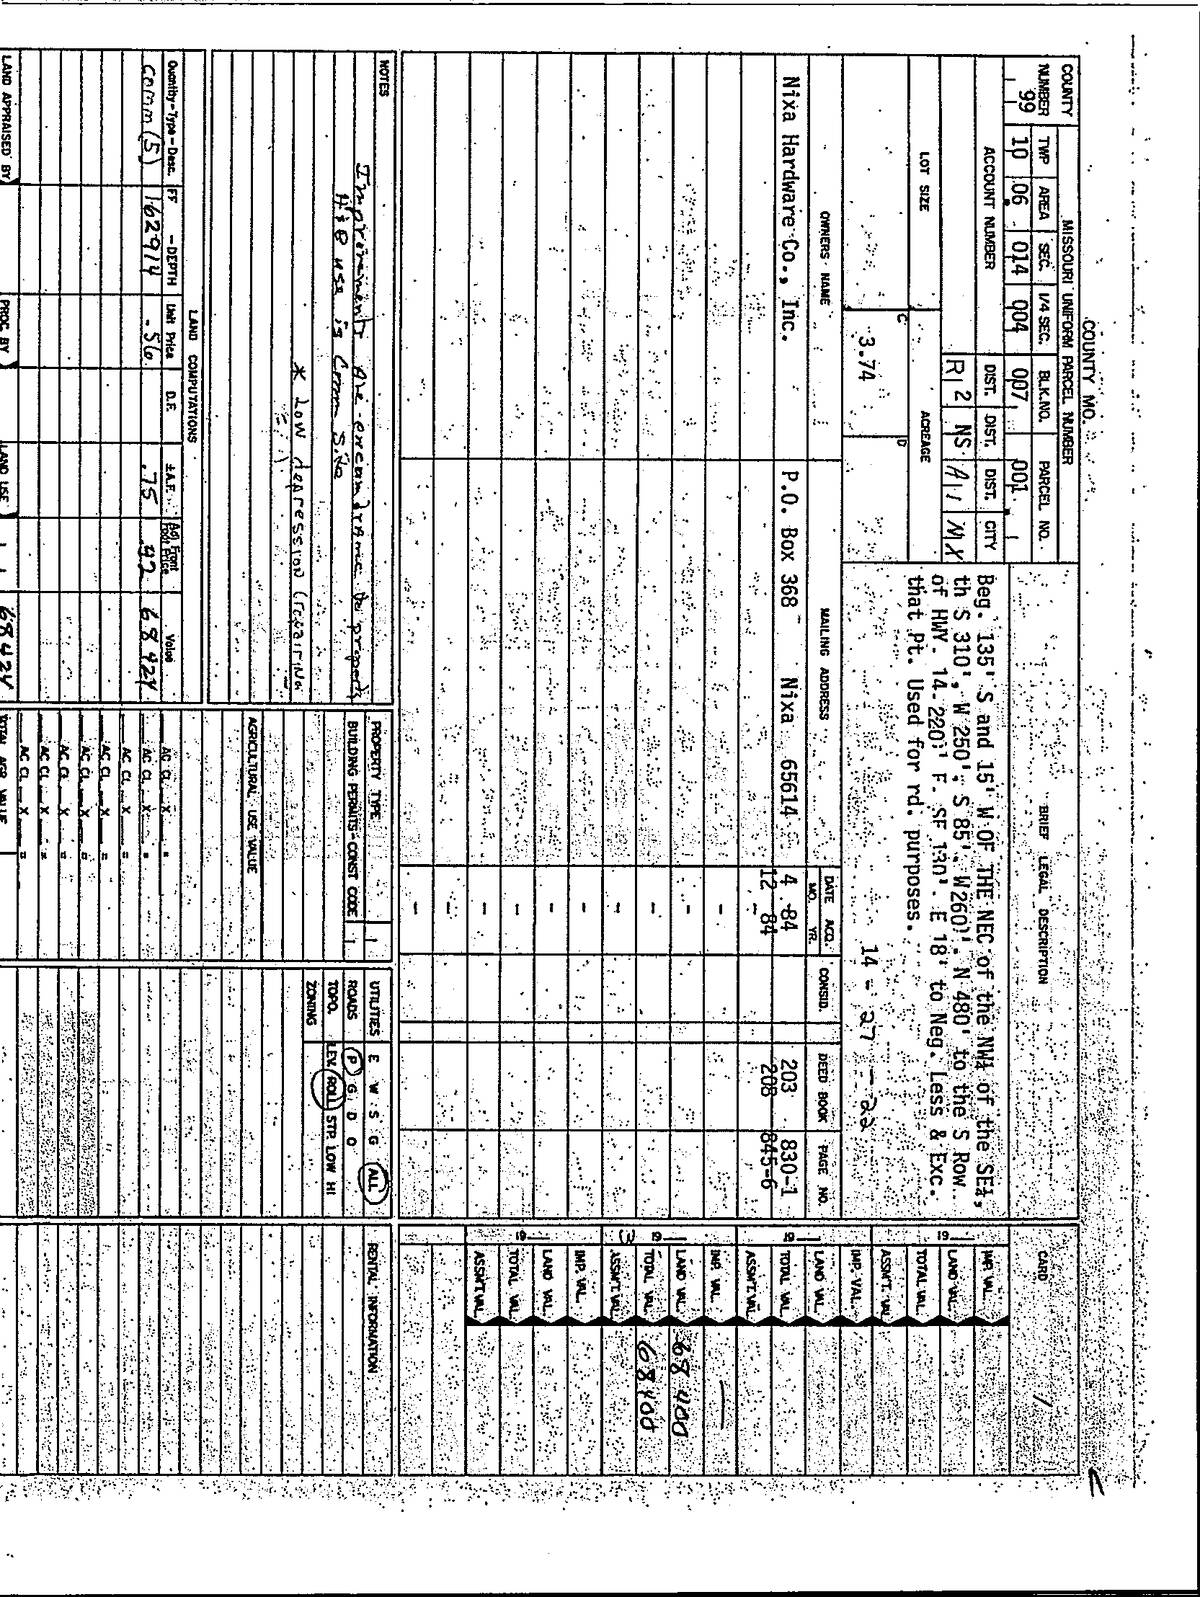 COUNTY MO.
COUNTY NUMBER MISSOURI UNIFORM PARCEL NUMBER
TWP AREA SEC. 1/4 SEC. BLK.NO. PARCEL NO.
99 10 06 014 004 007 001
ACCOUNT NUMBER DIST. DIST. DIST. CITY
R 2 NS A 1 NX
LOT SIZE ACREAGE
C 3.74 D
BRIEF LEGAL DESCRIPTION
Beg. 135' S and 15' W OF THE NEC of the NW¼ of the SE¼,
th S 310', W 250', S 85', W 260', N 480' to the S Row
of HWY. 14-220', E. SE 130', E 18' to Neg. Less & Exc.
that Pt. Used for rd. purposes.
14 - 27 - 22
CARD 1
OWNERS NAME MAILING ADDRESS DATE ACQ. MO. YR. CONSID. DEED BOOK PAGE NO.
Nixa Hardware Co., Inc. P.O. Box 368 Nixa 65614 4 84 203 830-1
12 84 208 845-6
19
IMP. VAL.
LAND VAL.
TOTAL VAL.
ASSM'T. VAL.
19
IMP. VAL.
LAND VAL.
TOTAL VAL.
ASSM'T. VAL.
19
IMP. VAL. —
LAND VAL. 68400
TOTAL VAL. 68400
ASSM'T. VAL.
19
IMP. VAL.
LAND VAL.
TOTAL VAL.
ASSM'T. VAL.
NOTES
Improvements are on
use is Comm
* Low depression (requiring
PROPERTY TYPE 1
BUILDING PERMITS-CONST CODE 1
AGRICULTURAL USE VALUE
UTILITIES E W S G ALL
ROADS P G D O
TOPO. LEV. ROLL STP. LOW HI
ZONING
RENTAL INFORMATION
LAND COMPUTATIONS
Quantity-Type-Desc. FF -DEPTH Unit Price D.F. ± A.F. Adj. Front Foot Price Value
Comm (5) 162914 .56 .75 .42 68424
AC CL X =
AC CL X =
AC CL X =
AC CL X =
AC CL X =
AC CL X =
AC CL X =
AC CL X =
LAND APPRAISED BY PROC BY LAND USE 68424 TOTAL AGR VALUE